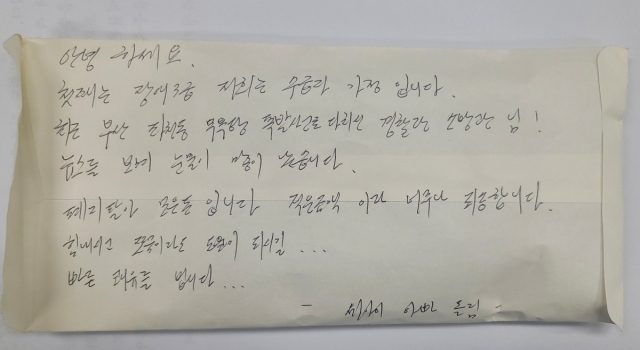 안녕 하세요.
첫째는 장애3급 저희는 수급자 가정 입니다.
부산 목욕탕 폭발사고로 다치신 경찰관 소방관 님!
뉴스를 보며 눈물이 많이 났습니다.
폐지팔아 모은돈 입니다 적은금액 이라 너무나 죄송합니다.
힘내시고 조금이라도 도움이 되시길 ...
빠른 쾌유를 빕니다 ...
- 아빠 드림 -